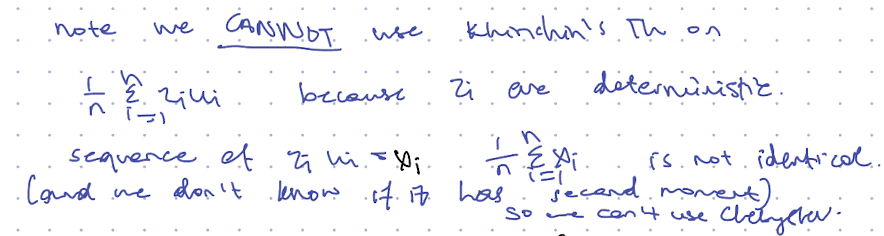 note we CANNOT use Khinchin's Th on
1/n Σ_{i=1}^{n} z_i u_i because z_i are deterministic.
sequence of z_i u_i = x_i 1/n Σ_{i=1}^{n} x_i is not identical.
(and we don't know if it has second moment)
so we can't use Chebyshev.